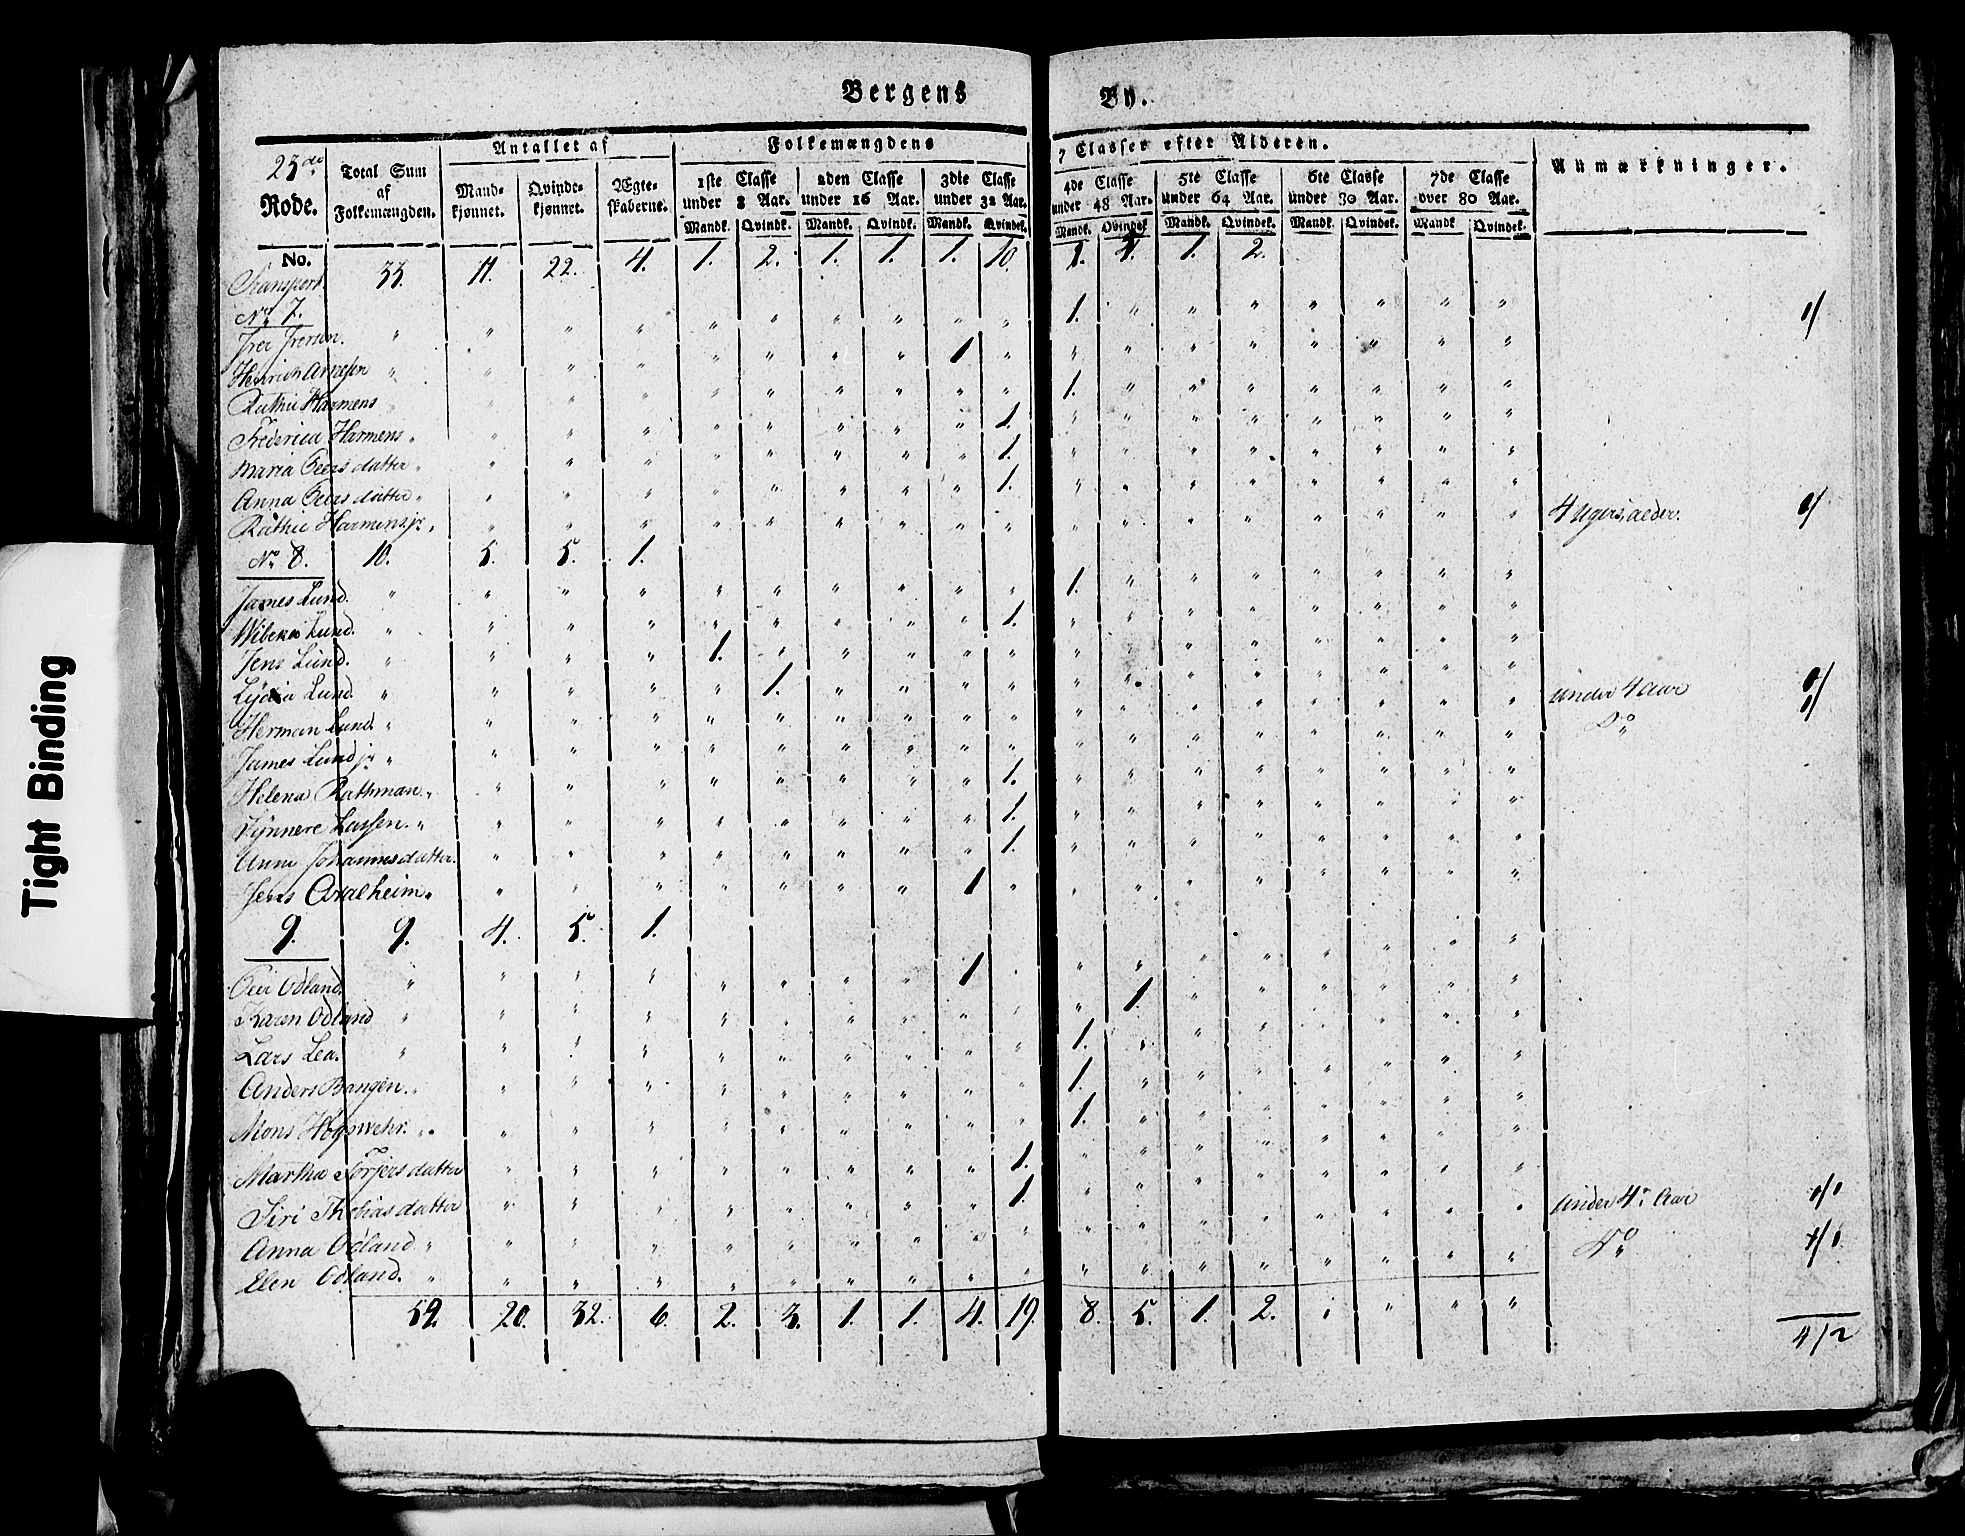 Bergens By.
23de Rode. Total Sum af Folkemængden. Antallet af Mandkjønnet. Qvindekjønnet. Ægteskaberne. Folkemængdens 7 Classer efter Alderen. Anmærkninger.
1ste Classe under 8 Aar. 2den Classe under 16 Aar. 3die Classe under 32 Aar. 4de Classe under 48 Aar. 5te Classe under 64 Aar. 6te Classe under 80 Aar. 7de Classe over 80 Aar.
Mandk. Qvindk. Mandk. Qvindk. Mandk. Qvindk. Mandk. Qvindek. Mandk. Qvindek. Mandk. Qvindek. Mandk Qvindek.
No.
Transport. 33. 11. 22. 4. 1. 2. 1. 1. 1. 10. 1. 4. 1. 2.
No. 7.
Iver Iversen. " " " " " " " " " " 1. " " " " " " " 1/
Henrich Arnesen " " " " " " " " 1 " " " " " " " " "
Rathie Harmens " " " " " " " " " " 1. " " " " " " "
Frederica Harmens " " " " " " " " " 1. " " " " " " " "
Maria Peersdatter " " " " " " " " " 1. " " " " " " " "
Anna Peersdatter " " " " " " " " " 1. " " " " " " " "
Rathie Harmens jr. " " " " " " " " " " " " " " " " " " 4 Ugers alder.
No. 8. 10. 5. 5. 1.
James Lund. " " " " " " " " " " 1. " " " " " " "
Wibeke Lund. " " " " " " " " " 1. " " " " " " " "
Jens Lund. " " " " 1. " " " " " " " " " " " " "
Lydia Lund " " " " " 1. " " " " " " " " " " " " under 4 Aar
Herman Lund. " " " " " " " " " " " " " " " " " " Do
James Lund jr " " " " " " " " " " " " " " " " " "
Helena Rathman " " " " " " " " " 1. " " " " " " " "
Lassen. " " " " " " " " " 1. " " " " " " " "
Anne Johannesdatter. " " " " " " " " 1. " " " " " " " "
Jens " " " " " " " " 1 " " " " " " " " "
9. 9. 4. 5. 1.
Peer Odland. " " " " " " " " 1 " " " " " " " " "
Karen Odland " " " " " " " " " " " 1. " " " " " "
Lars Lea. " " " " " " " " " " 1. " " " " " " "
Anders Bangen. " " " " " " " " " " 1. " " " " " " "
Mons " " " " " " " " " " 1. " " " " " " "
Martha Torjersdatter " " " " " " " " 1. " " " " " " " "
Siri Thobiasdatter " " " " " " " " 1. " " " " " " " " under 4. Aar
Anna Odland " " " " " " " " " " " " " " " " " " Do
Elen Odland. " " " " " " " " " " " " " " " " " "
52. 20. 32. 6. 2. 3. 1. 1. 4. 19. 8. 5. 1. 2. " " " " 4/2
Tight Binding